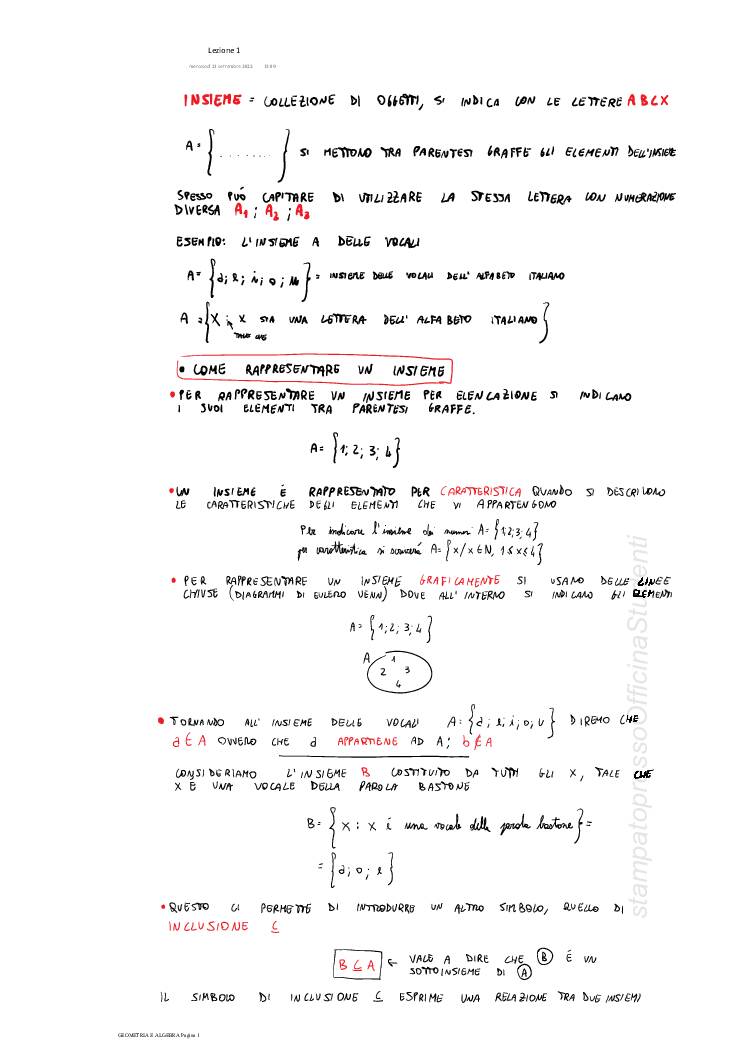 Lezione 1
mercoledì 21 settembre 2022
INSIEME = COLLEZIONE DI OGGETTI, SI INDICA CON LE LETTERE A B C X
A = { ........ } SI METTONO TRA PARENTESI GRAFFE GLI ELEMENTI DELL'INSIEME
SPESSO PUÓ CAPITARE DI UTILIZZARE LA STESSA LETTERA CON NUMERAZIONE
DIVERSA A₁ ; A₂ ; A₃
ESEMPIO: L'INSIEME A DELLE VOCALI
A = { a; e; i; o; u } = INSIEME DELLE VOCALI DELL'ALFABETO ITALIANO
A = { X : X SIA UNA LETTERA DELL'ALFABETO ITALIANO }
TALE CHE
• COME RAPPRESENTARE UN INSIEME
• PER RAPPRESENTARE UN INSIEME PER ELENCAZIONE SI INDICANO
I SUOI ELEMENTI TRA PARENTESI GRAFFE.
A = { 1; 2; 3; 4 }
• UN INSIEME É RAPPRESENTATO PER CARATTERISTICA QUANDO SI DESCRIVONO
LE CARATTERISTICHE DEGLI ELEMENTI CHE VI APPARTENGONO
Per indicare l'insieme dei numeri A = {1;2;3;4}
per caratteristica si scriverá A = { x / x ∈ N, 1 ≤ x ≤ 4 }
• PER RAPPRESENTARE UN INSIEME GRAFICAMENTE SI USANO DELLE LINEE
CHIUSE (DIAGRAMMI DI EULERO VENN) DOVE ALL'INTERNO SI INDICANO GLI ELEMENTI
A = { 1; 2; 3; 4 }
A 1
2 3
4
• TORNANDO ALL'INSIEME DELLE VOCALI A = { a; e; i; o; u } DIREMO CHE
a ∈ A OVVERO CHE a APPARTIENE AD A; b ∉ A
CONSIDERIAMO L'INSIEME B COSTITUITO DA TUTTI GLI X, TALE CHE
X É UNA VOCALE DELLA PAROLA BASTONE
B = { X : X é una vocale della parola bastone } =
= { a; o; e }
• QUESTO CI PERMETTE DI INTRODURRE UN ALTRO SIMBOLO, QUELLO DI
INCLUSIONE ⊆
B ⊆ A ← VALE A DIRE CHE B É UN
SOTTOINSIEME DI A
IL SIMBOLO DI INCLUSIONE ⊆ ESPRIME UNA RELAZIONE TRA DUE INSIEMI
stampatopressoOfficinaStudenti
GEOMETRIA E ALGEBRA Pagina 1